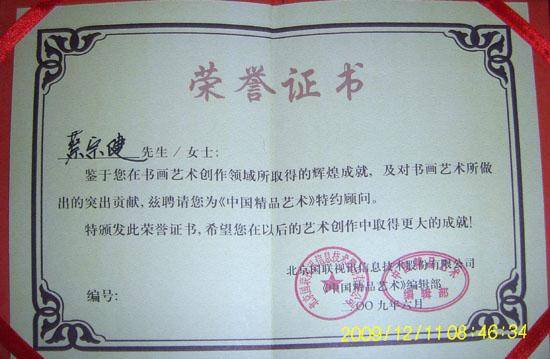 荣誉证书
蔡宗健 先生/女士:
鉴于您在书画艺术创作领域所取得的辉煌成就,及对书画艺术所做
出的突出贡献,兹聘请您为《中国精品艺术》特约顾问。
特颁发此荣誉证书,希望您在以后的艺术创作中取得更大的成就!
北京国联视讯信息技术股份有限公司
《中国精品艺术》编辑部
编号:
二〇〇九年六月
北京国联视讯信息技术股份有限公司
中国精品艺术
编辑部
2009/12/11 08:46:34